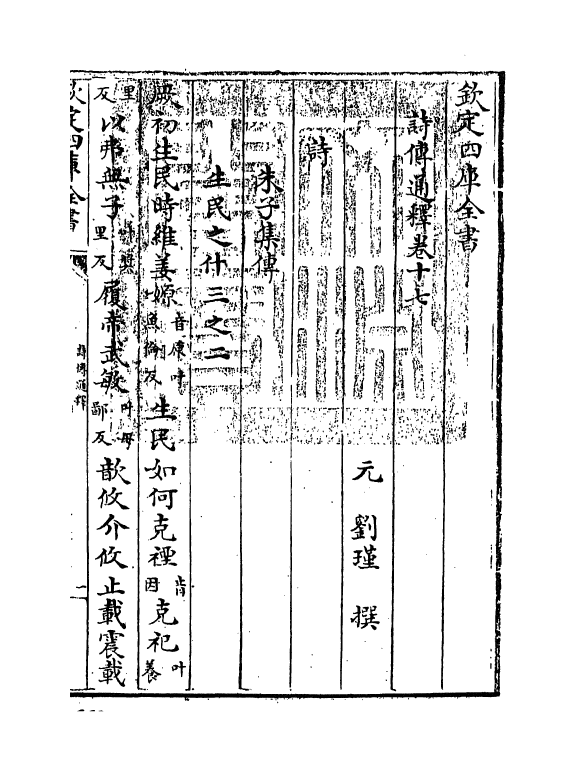 欽定四庫全書
詩傳通釋卷十七
元 劉瑾 撰
詩
朱子集傳
生民之什三之二
厥初生民時維姜嫄音原叶魚倫反生民如何克禋音因克祀叶養
里反以弗無子叶奬里反履帝武敏叶母鄙反歆攸介攸止載震載
欽定四庫全書 詩傳通釋 一